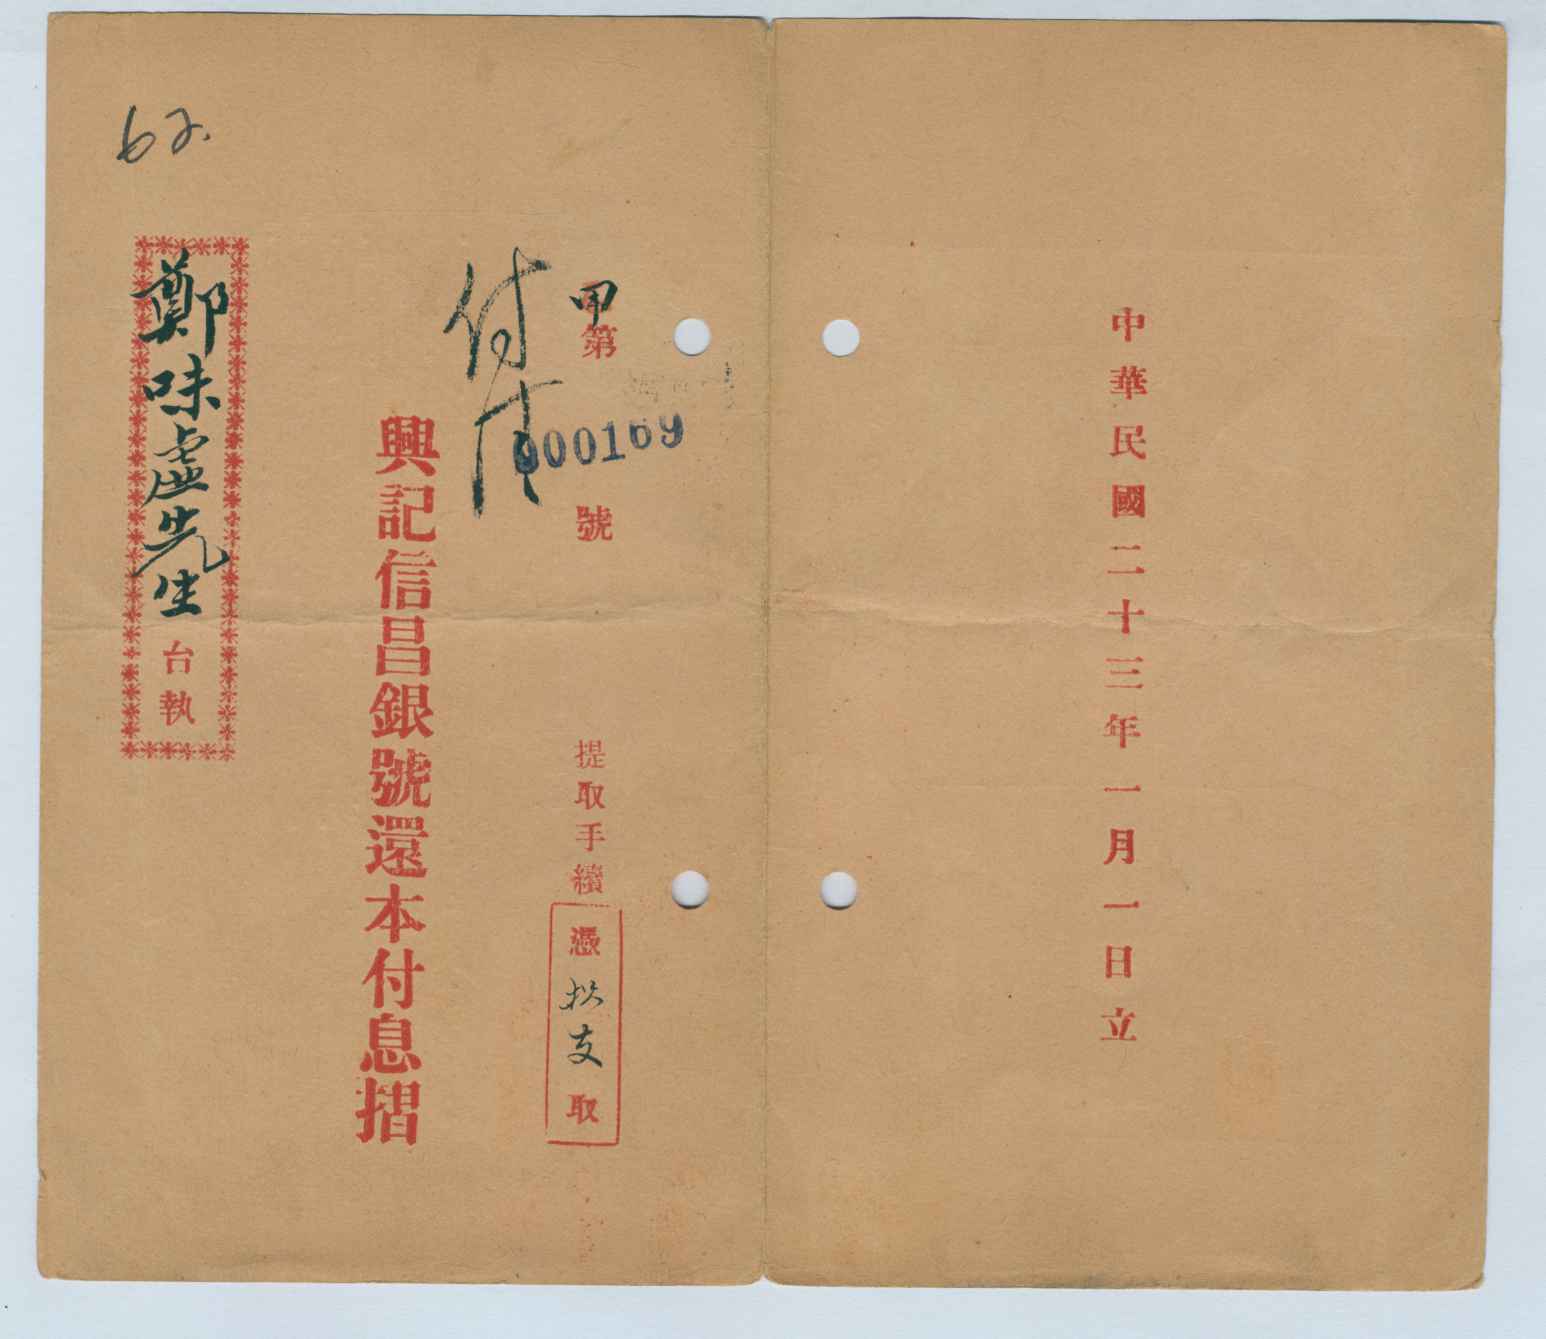 中華民國二十三年一月一日立
甲第000169號
提取手續憑摺支取
付清
興記信昌銀號還本付息摺
鄭味虛先生台執
62.